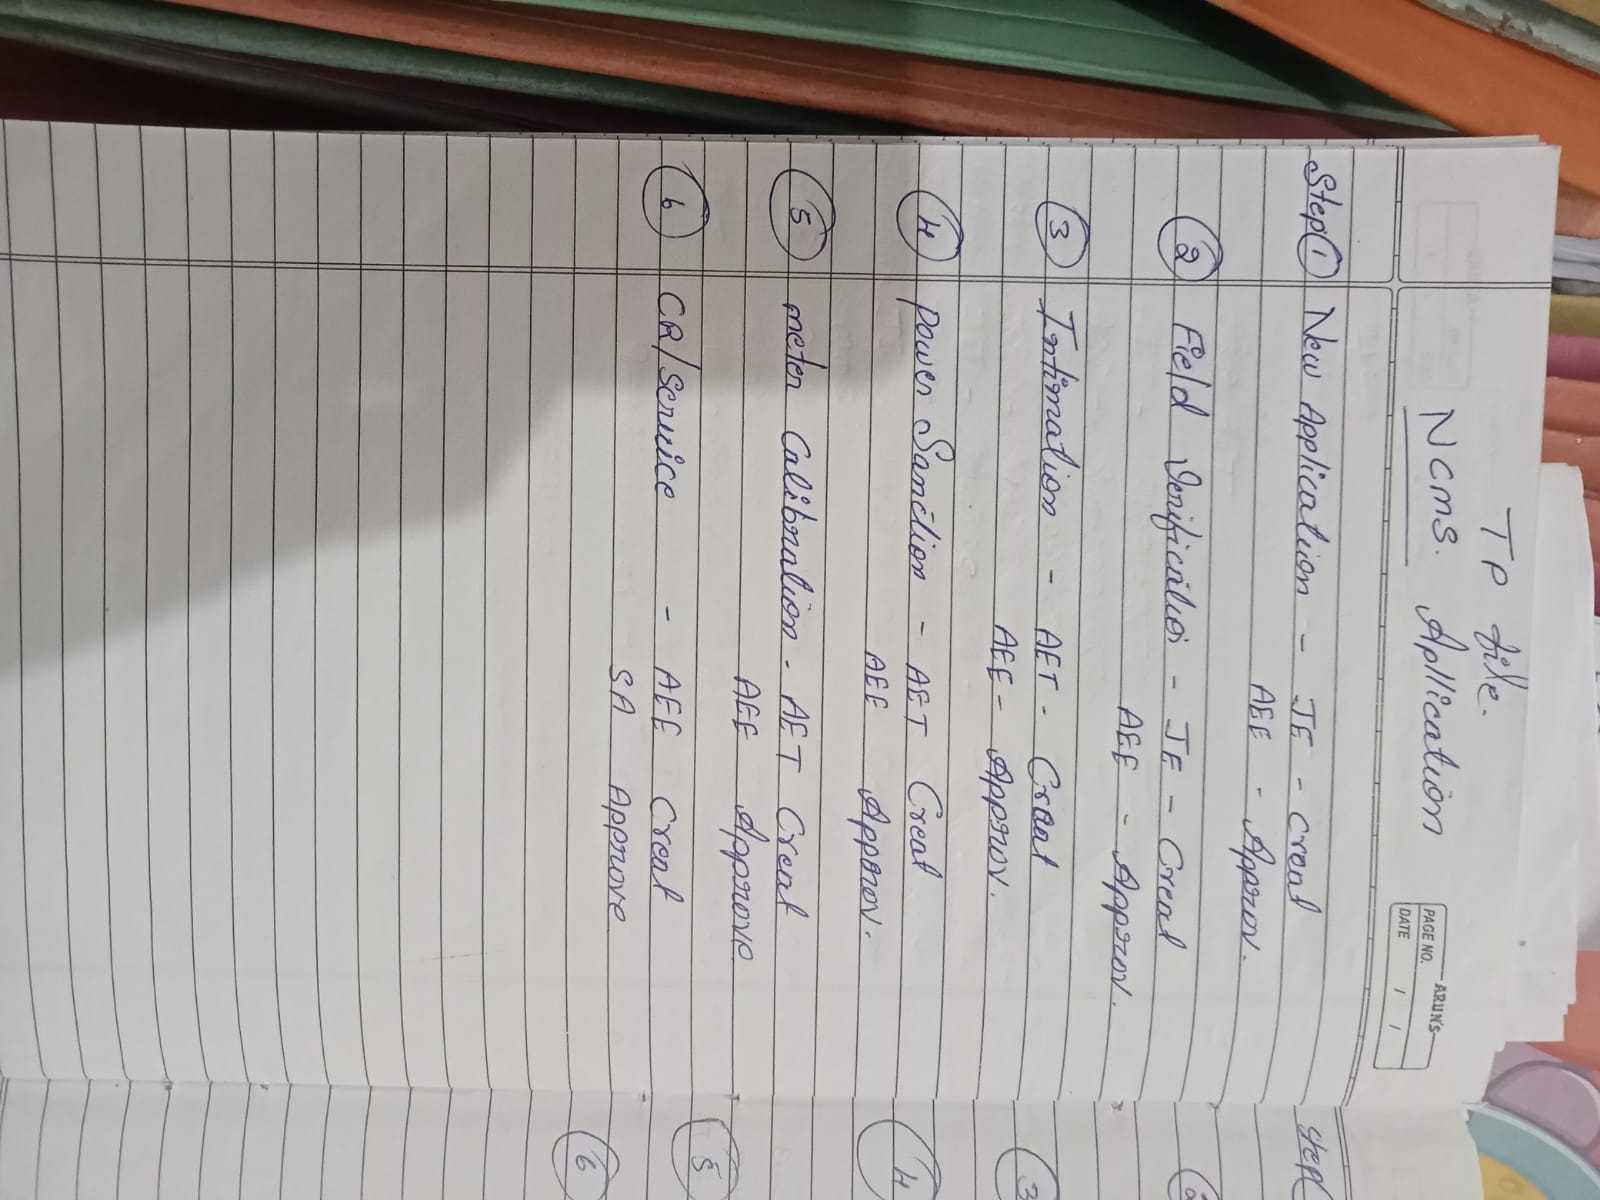 TP file.
NCMS. Application
ARUN'S
PAGE NO.
DATE / /
Step 1 New Application - JE - Creat
AEE - Approv.
2 Field Verificatioi - JE - Creat
AEE - Approv.
3 Intimation - AET - Creat
AEE - Approv.
4 Power Sanction - AET Creat
AEE Approv.
5 meter Calibration - AET Creat
AEE Approve
6 CR/Service - AEE Creat
SA Approve
Step
2
3
4
5
6